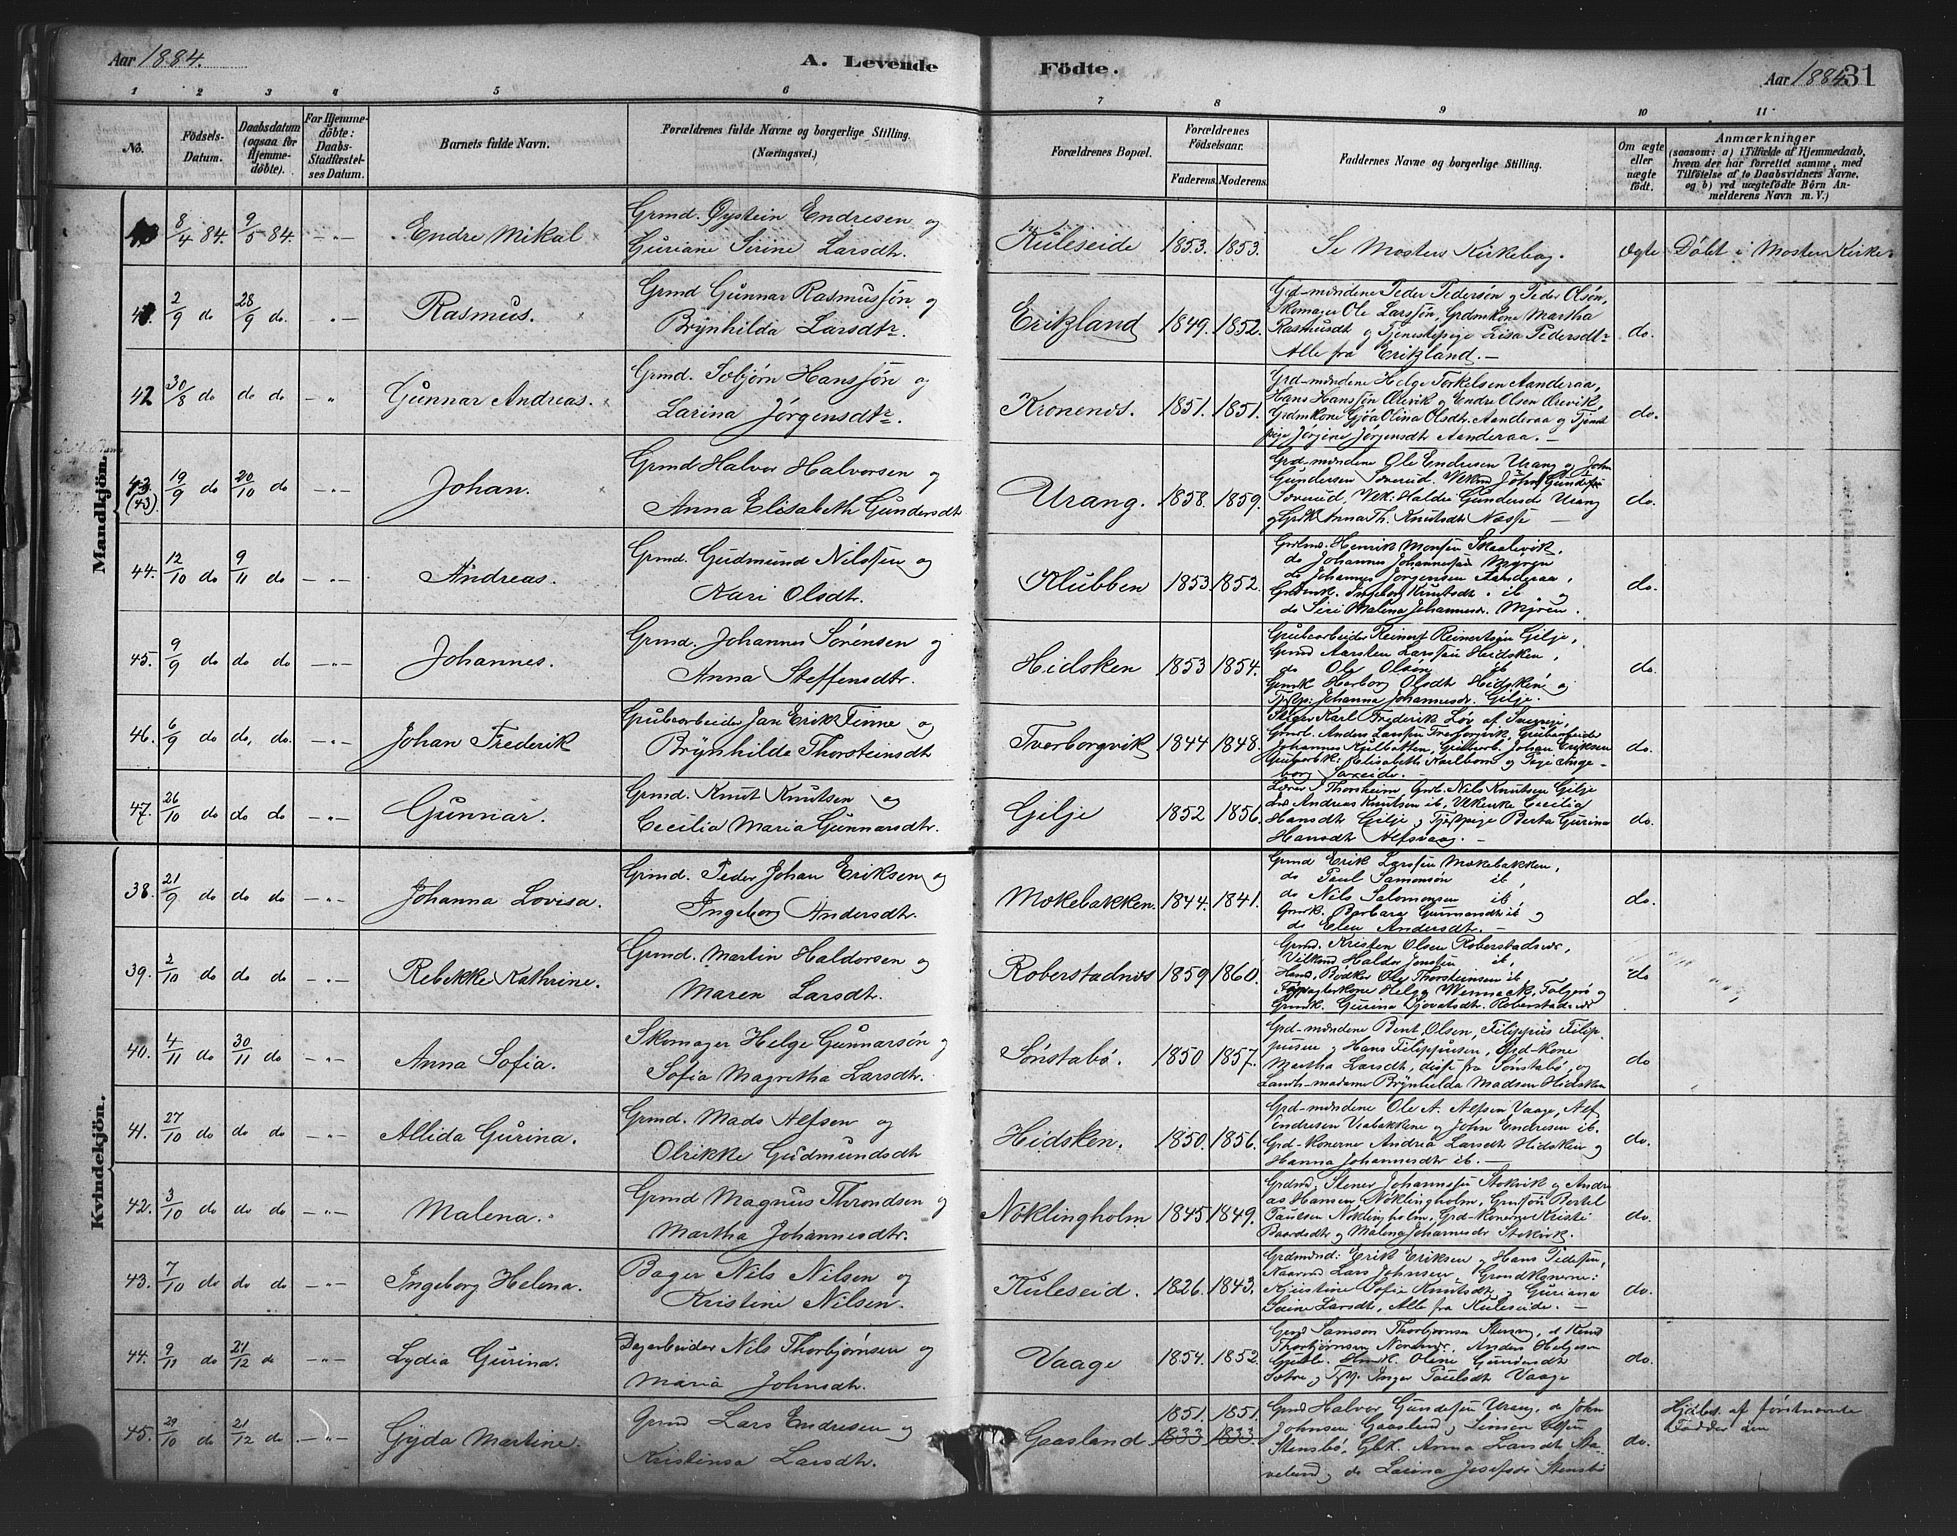 Aar 1884.
A. Levende Födte.
Aar 1884. 31
1 2 3 4 5 6 7 8 9 10 11
No.
Födsels-
Datum.
Daabsdatum
(ogsaa for
Hjemme-
döbte).
For Hjemme-
döbte:
Daabs-
Stadfæstel-
ses Datum.
Barnets fulde Navn.
Forældrenes fulde Navne og borgerlige Stilling.
(Næringsvei.)
Forældrenes Bopæl.
Forældrenes
Födselsaar.
Faderens. Moderens.
Faddernes Navne og borgerlige Stilling.
Om ægte
eller
uægte
födt.
Anmærkninger
(saasom: a) i Tilfælde af Hjemmedaab,
hvem der har forrettet samme, med
Tilföielse af to Daabsvidners Navne,
og b) ved uægtefödte Börn An-
melderens Navn m. V.)
Mandkjön.
8/4 84. 9/5 84. -"- Endre Mikal
Grmd. Øystein Endresen og
Guriane Sirine Larsdtr.
Kuleseide 1853. 1853. Se Mosters Kirkebog. Ægte Döbt i Moster Kirke
2/9 do 28/9 do. -"- Rasmus.
Grmd Gunnar Rasmussön og
Brÿnhilda Larsdtr
Erikzland 1849. 1852.
Grd-mændene Peder Pedersön og Peder Olsön,
Skomager Ole Larssön, Grdmkone Martha
Rasmusdt og Tjenestepige Lisa Pedersdtr
Alle fra Erikzland. —
do.
42 30/8 do do do -" Gunnar Andreas.
Grmd. Sebjörn Hanssön og
Larina Jörgensdtr.
Kronenes. 1851. 1851.
Grd-mændene Helge Torkelsen Aanderaa,
Hans Hanssön Orevik og Endre Olsen Orevik,
Grdmkone Gjöa Olina Olsdt. Aanderaa og Tjenst
pige Jörgine Jörgensdt Aanderaa. —
do.
43 (43). 19/9 do 20/10 do -"- Johan.
Grmd Halvor Halvorsen og
Anna Elisabeth Gundersdt
Urang. 1858. 1859.
Grd-mændene Ole Endresen Urang og John
Gundersen Sæverud.
Sæverud, Haldis Gundersdt Urang
Anna Th. Knutsdt Næsse —
do.
44. 12/10 do 9/11 do -"- Andreas.
Grmd. Gudmund Nilssen og
Kari Olsdtr.
Klubben 1853 1852.
Grdmd. Henrik Monsen Skaalevik,
do Johannes Johannessen Myren
do Johannes Jörgensen Aanderaa,
Grdmk. Ingeborg Knutsdt. ib og
do Siri Malena Johannesdr. Myren.
do.
45. 9/9 do do do -"- Johannes.
Grmd. Johannes Sörensen og
Anna Steffensdtr.
Hidsken 1853 1854.
Grubearbeider Reinert Reinertsen Gilje,
Grmd Aarsten Larssen Hidsken,
do Ole Olsön ib
Grmk Herborg Olsdt Hidsken og
Johanna Johannesdr. Gilje.
do.
46. 6/9 do do, do. -"- Johan Frederik
Grubearbeider Jan Erik Finne og
Brÿnhilde Thorsteinsdt
Tverborgvik 1844 1848.
Stiger Karl Frederik
Anders Larssen Tverborgvik, Grubearbeider
Johannes Kulbakken, Johan Eriksen
Elisabeth Karlborn og Pige Inge-
borg Sæveide. —
do.
47. 26/10 do do do -"- Gunnar.
Grmd. Knut Knutsen og
Cecilia Maria Gunnarsdtr.
Gilje 1852 1856.
Lærer Thorsheim, Grb. Nils Knutsen Gilje
Andreas Knutsen ib, Cecilia
Hansdt Gilje, Berta Gurina
Hansdt Alfsvaag. —
do.
Kvindekjön.
38. 21/9 do do do -"- Johanna Lovisa.
Grmd. Peder Johan Eriksen og
Ingeborg Andersdtr.
Mækebakken. 1844. 1841.
Grmd Erik Larssen Mækebakken,
do Paul Samonsön ib,
do Nils Salomonsen ib,
Grmk. Barbara Gurmandt ib og
do Elen Andersdt. —
do.
39. 2/10 do do do -"- Rebekke Kathrine.
Grmd. Martin Haldorsen og
Maren Larsdt.
Roberstadnes 1859 1860.
Grmd. Kristen Olsen Roberstadnes,
Haldor Jonssen ib,
Bödker Ole Thorsteinsen ib,
Helga Wennack, Folgerö og
Grmdk. Gurina Roberstadnes
do
40. 4/11 do 30/11 do -"- Anna Sofia.
Skomager Helge Gunnarsön og
Sofia Magretha Larsdtr.
Sönstabö. 1850 1857.
Grd-mændene Bent Olsen, Filippus Filip-
pusen og Hans Filippusen, Grd-kone
Martha Larsdt, disse fra Sönstabö, og
Landh-madame Brÿnhilda Madsen Hidsken
do
41. 27/10 do do do -"- Allida Gurina.
Grmd. Mads Alfsen og
Olrikke Gudmundsdt
Hidsken. 1850. 1856.
Grd-mændene Ole A. Alfsen Vaage, Alf
Endresen Vabakkene og John Endresen ib.
Grd-konerne Andrea Larsdt Hidsken og
Hanna Johannesdtr ib. —
do.
42. 3/10 do do do -"- Malena.
Grmd Magnus Throndsen og
Martha Johannesdtr.
Nöklingholm 1845 1849.
Grdmd. Stener Johannssen Stokvik og Andre
as Hansen Nöklingholm, Bertel
Paulsen Nöklingholm, Grd-konerne Kristi
Baardsdt og Malena Johannesdt Stokvik.
do.
43. 7/10 do do do -"- Ingeborg Helena.
Bager Nils Nilsen og
Kristine Nilsen.
Kuleseid. 1826. 1843.
Grdmænd: Erik Eriksen og Hans Pedersen,
Lars Johnsen, Grundkonerne:
Kjerstine Sofia Knutsdt og Guriana
Serine Larsdt, Alle fra Kuleseide. —
do.
44. 9/11 do 21/12 do -"- Lydia Gurina.
Dagarbeider Nils Thorbjörnsen og
Maria Johnsdtr.
Vaage 1854. 1852.
Grmd Samson Thorbjörnsen
Thorbjörnsen Anders Helgesen
Oline Gundersdt
Inger Paulsdt Vaage
do.
45. 29/10 do 21/12 do -"- Gyda Martine.
Grmd Lars Endresen og
Kristensa Larsdtr.
Gaasland 1851. 1851.
1833 1833.
Grmd Halvor Gundersen Urang, do John
Johnsen Gaasland, Simon Olsen
Stensbö, Anna Larsdt Sta-
veland, do Larina Josefsdr Stensbö
do.
Hjdöbt. af förstnævnte
Fadder den